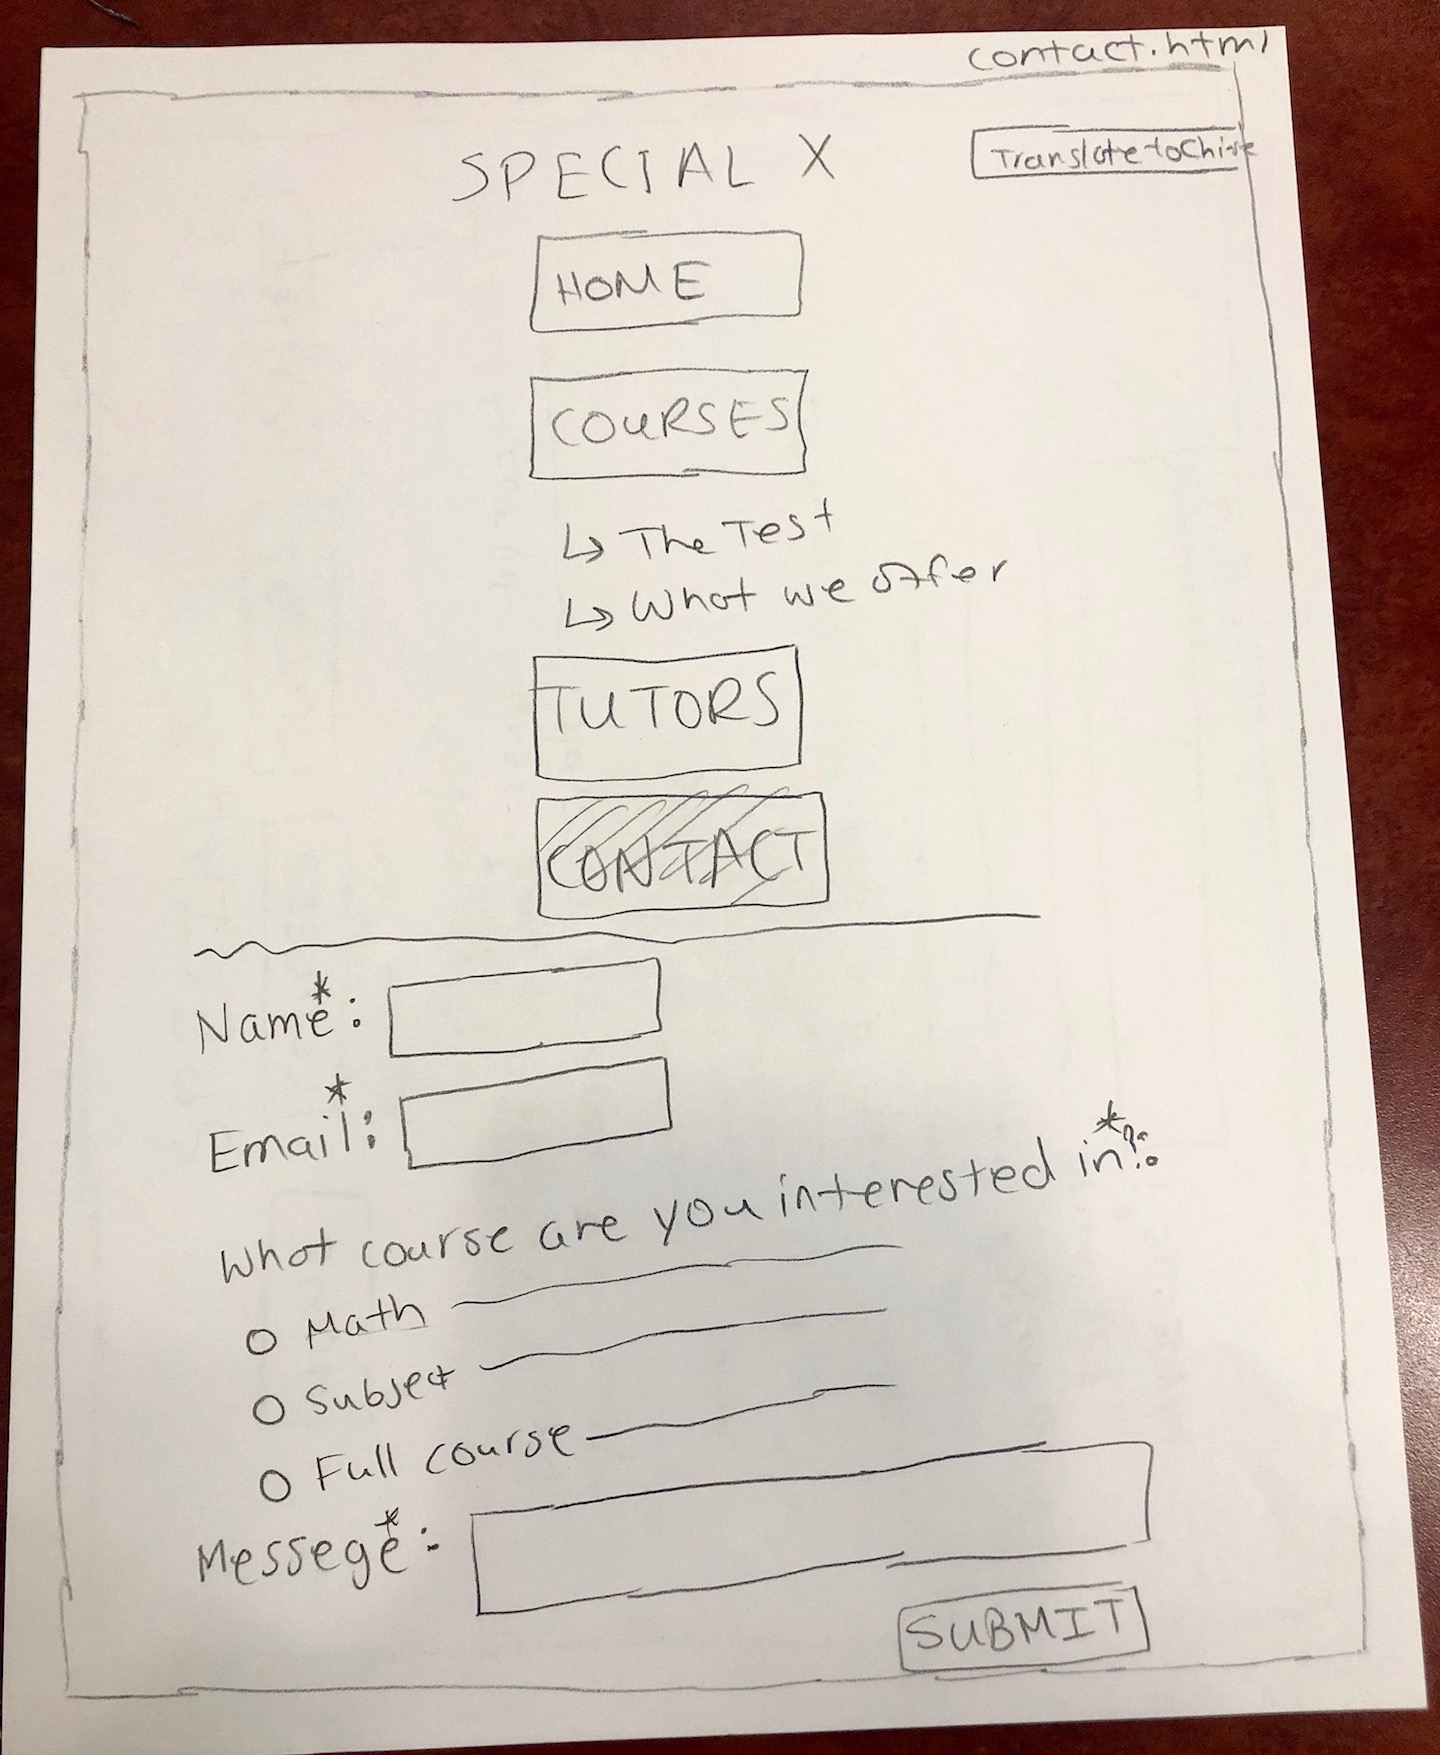 contact.html
SPECIAL X
Translate to Chine
HOME
COURSES
↳ The Test
↳ What we offer
TUTORS
CONTACT
Name*:
Email*:
What course are you interested in*?:
Math
Subject
Full course
Messege*:
SUBMIT